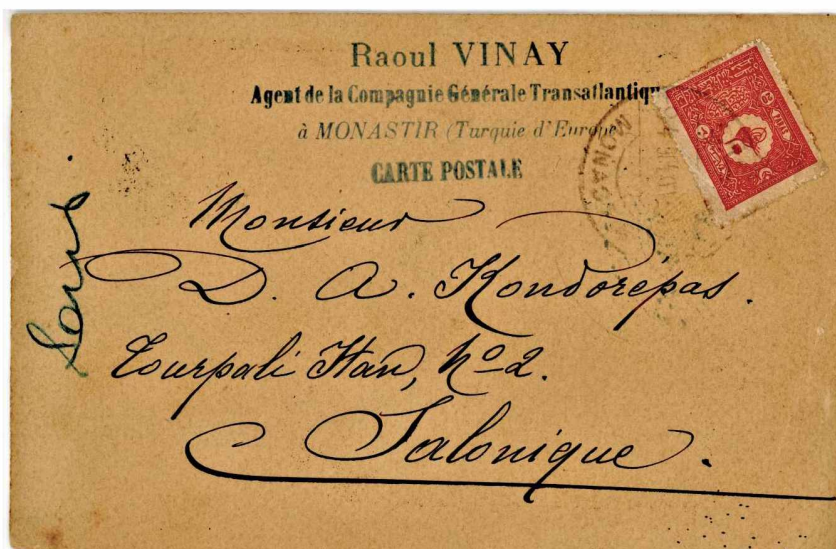 Raoul VINAY
Agent de la Compagnie Générale Transatlantique
à MONASTIR (Turquie d'Europe)
CARTE POSTALE
Monsieur
D. A. Kondorépas.
Tourpali Han, No 2.
Salonique.